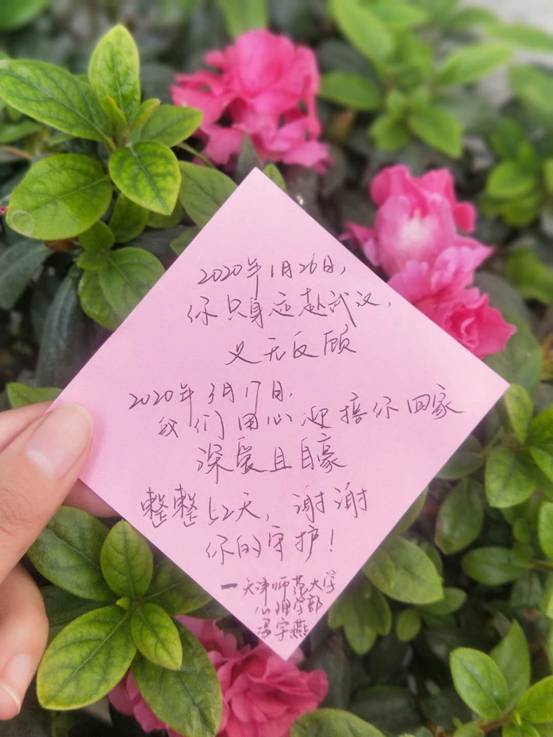 2020年1月26日,
你只身远赴武汉,
义无反顾
2020年3月17日,
我们用心迎接你回家
深爱且自豪
整整52天,谢谢
你的守护!
—天津师范大学
心理学部
宇燕